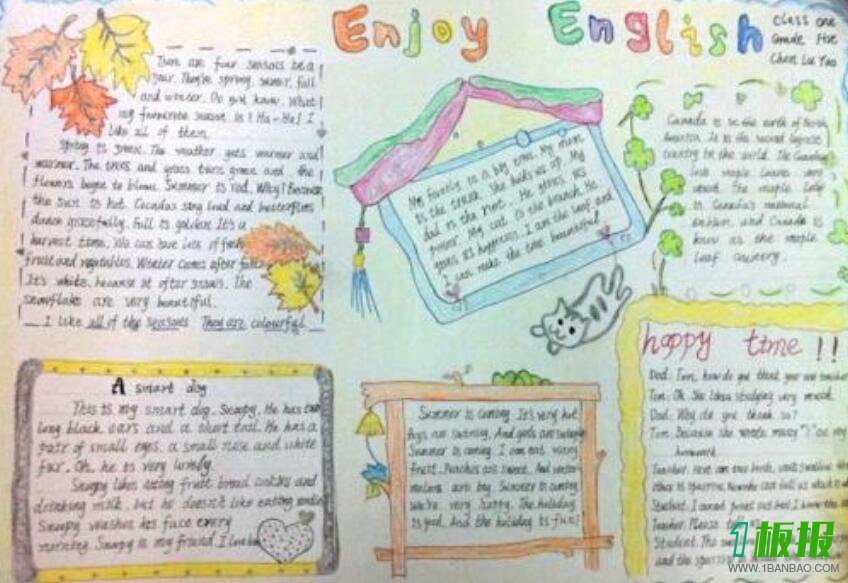 Enjoy English
Class one
Grade Five
There are four seasons in a
year. They're spring, summer, fall
and winter. Do you know. What
my favourite season is? Ha-Ha! I
like all of them.
Spring is green. The weather gets warmer and
warmer. The trees and grass turns green and the
flowers begin to bloom. Summer is red. Why? Because
the sun is hot. Cicadas sing loud and butterflies
dance gracefully. Fall is golden. It's a
harvest time. We can have lots of fresh
fruit and vegetables. Winter comes after fall.
It's white, because it often snows. The
snowflake are very beautiful.
I like all of the seasons They are colourful.
My family is a big tree. My mum
is the trunk. She holds us up. My
dad is the root. He gives us
power. My cat is the branch. He
gives us happiness. I am the leaf and
I can make the tree beautiful
Canada is in the north of North
America. It is the second largest
country in the world. The Canadian
love maple leaves very
much. The maple leaf
is Canada's national
emblem and Canada is
know as the maple
leaf country.
A smart dog
This is my smart dog, Snoopy. He has two
long black ears and a short tail. He has a
pair of small eyes, a small nose and white
fur. Oh, he is very lovely.
Snoopy likes eating fruit bread cookies and
drinking milk, but he doesn't like eating
Snoopy washes his face every
morning. Snoopy is my friend. I love him
Summer is coming. It's very hot
Boys are swimming. And girls are
Summer is coming. I can eat many
fruit. Peaches are sweet. And water-
melons are big. Summer is coming
we're very happy. The holiday
is good. And the holiday is fun!
happy time!!
Dad: Tom, how do you think your new teacher
Tom: Oh. She likes studying very much.
Dad: Why do you think so?
Tom: Because she wrote many "?" on my
homework.
Teacher: Here are two birds, one's swallow the
other is sparrow. Now who can tell us which is
Student: I cannot point out but I know the
Teacher: Please
Student: The
and the sparrow
1板报
WWW.1BANBAO.COM